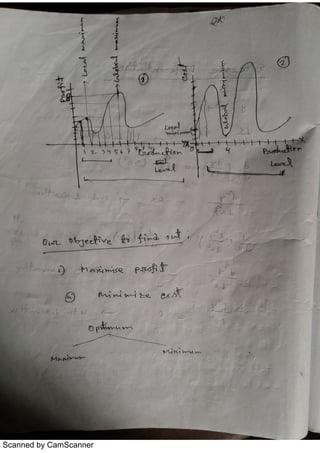 Local maximum
Global maximum
Profit
①
Production
Level
Cost
②
Local
minimum
Global minimum
4
Production
Level
Our objective to find out,
i) Maximise profit
ii) minimize cost
Optimum
Maximum
Minimum
Scanned by CamScanner